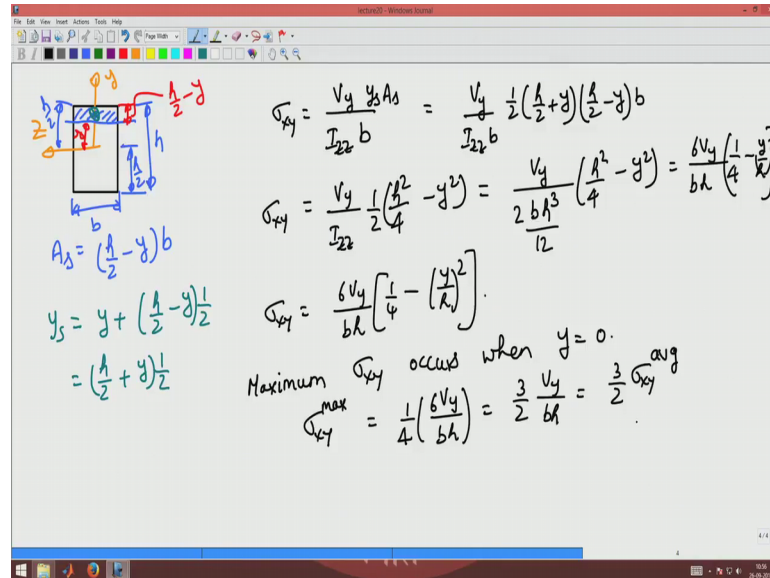 lecture20 - Windows Journal
File Edit View Insert Actions Tools Help
Page Width
B I
y
h/2
h/2 - y
z
y
h
h/2
b
A_s = (h/2 - y) b
y_s = y + (h/2 - y) 1/2
= (h/2 + y) 1/2
σ_xy = V_y y_s A_s / I_zz b = V_y / I_zz b 1/2 (h/2 + y)(h/2 - y) b
σ_xy = V_y / I_zz 1/2 (h²/4 - y²) = V_y / (2 bh³/12) (h²/4 - y²) = 6V_y / bh (1/4 - (y/h)²
σ_xy = 6V_y / bh [1/4 - (y/h)²].
Maximum σ_xy occurs when y = 0.
σ_xy^max = 1/4 (6V_y / bh) = 3/2 V_y / bh = 3/2 σ_xy^avg
4/4
4
10:56